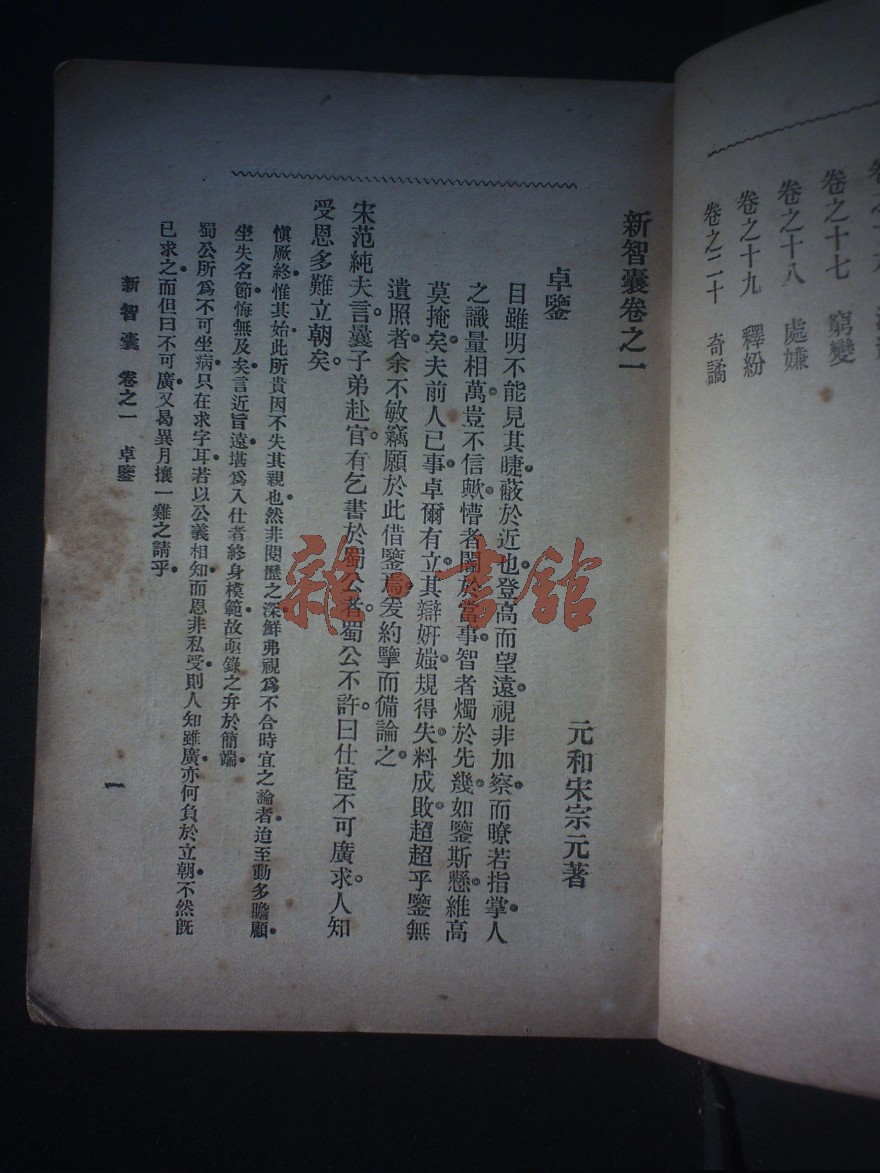 卷之十七　窮變
卷之十八　處嫌
卷之十九　釋紛
卷之二十　奇譎
新智囊卷之一
元和宋宗元著
卓鑒
目雖明不能見其睫蔽於近也登高而望遠視非加察而暸若指掌人
之識量相萬豈不信歟懵者闇於當事智者燭於先幾如鑒斯懸維高
莫掩矣夫前人已事卓爾有立其辯妍媸規得失料成敗超超乎鑒無
遺照者余不敏竊願於此借鑒焉爰約擧而備論之
宋范純夫言曩子弟赴官有乞書於蜀公者蜀公不許曰仕宦不可廣求人知
受恩多難立朝矣
愼厥終惟其始此所貴因不失其親也然非閱歷之深鮮弗視爲不合時宜之論者迨至動多瞻顧
坐失名節悔無及矣言近旨遠堪爲入仕者終身模範故亟錄之弁於簡端
蜀公所爲不可坐病只在求字耳若以公義相知而恩非私受則人知雖廣亦何負於立朝不然旣
已求之而但曰不可廣又曷異月攘一雞之請乎
新智囊　卷之一　卓鑒
一
雜·書館